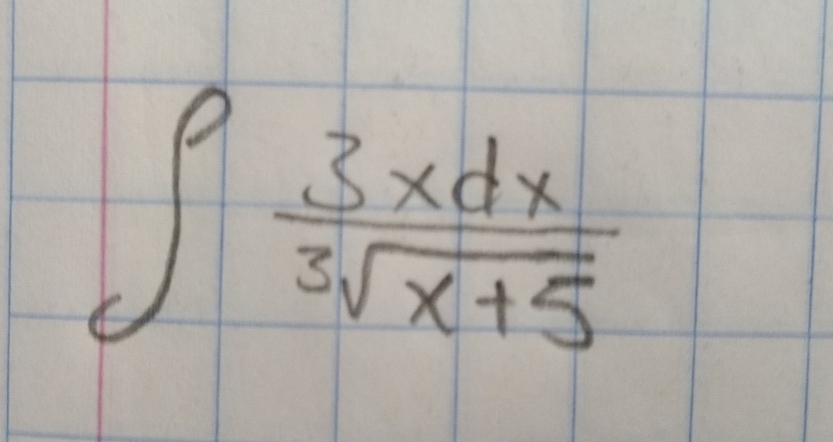 ∫ 3xdx / ³√(x+5)